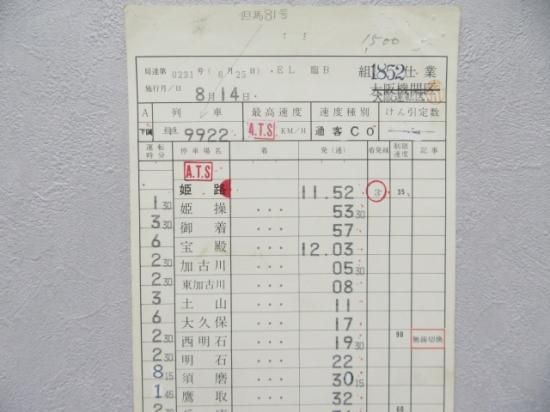 但馬81号
1500
局達第 0231 号 ( 6 月 25 日) ・EL 臨B 組 1852 仕業
施行月/日 8月14日
大阪機関区
A 列車 最高速度 速度種別 けん引定数
9922 A.T.S KM/H 通客C0
運転時分 停車場名 着 発(通) 着発線 制限速度 記事
A.T.S
姫路 11.52 3 35
1 30 姫操 ・・・ 53 30
3 30 御着 ・・・ 57
6 宝殿 ・・・ 12.03
2 30 加古川 ・・・ 05 30
2 30 東加古川 ・・・ 08
3 土山 ・・・ 11
6 大久保 ・・・ 17
2 30 西明石 ・・・ 19 30 90 無線切換
2 30 明石 ・・・ 22
8 15 須磨 ・・・ 30 15
1 45 鷹取 ・・・ 32